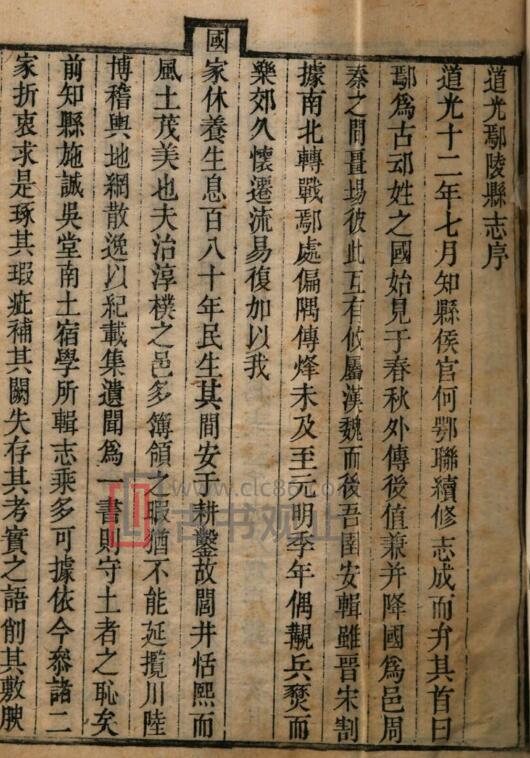 道光鄢陵縣志序
道光十二年七月知縣侯官何鄂聯續修志成而弁其首曰
鄢爲古妘姓之國始見于春秋外傳後值兼并降國爲邑周
秦之間畺場彼此互有攸屬漢魏而後吾圉安輯雖晉宋割
據南北轉戰鄢處偏隅傳烽未及至元明季年偶覯兵燹而
樂郊久懷遷流易復加以我
國
家休養生息百八十年民生其間安于耕鑿故閭井恬熙而
風土茂美也夫治淳樸之邑多簿領之暇猶不能延攬川陸
博稽輿地網散逸以紀載集遺聞爲一書則守土者之恥矣
前知縣施誠吳堂南土宿學所輯志乘多可據依今叅諸二
家折衷求是琢其瑕疵補其闕失存其考實之語削其敷腴
www.clc86.com
古书观止